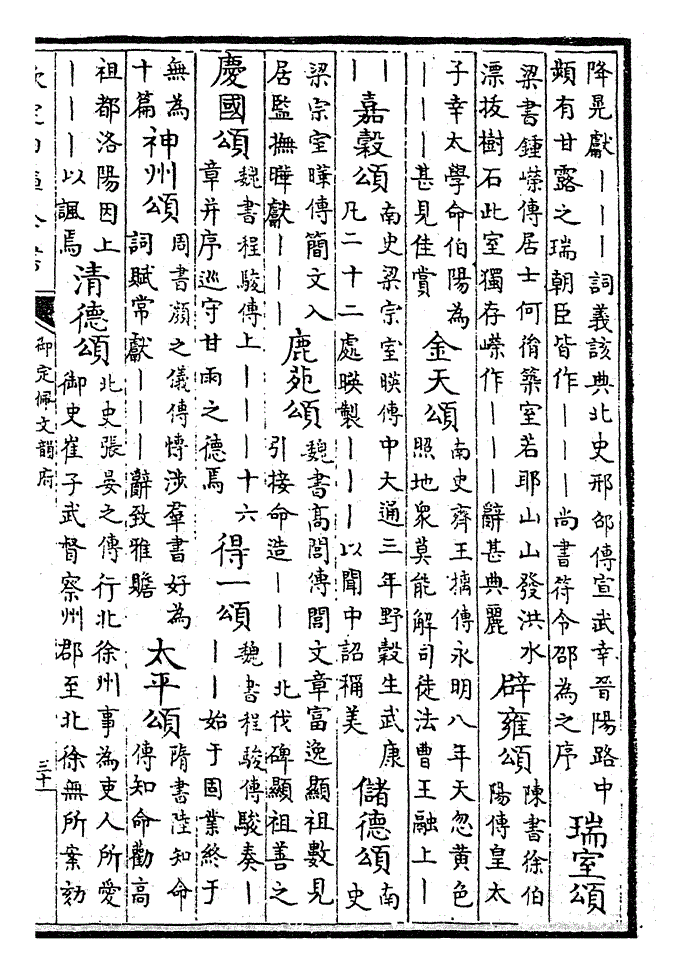 降晃獻｜｜｜詞義該典北史邢邵傳宣武幸晉陽路中
頻有甘露之瑞朝臣皆作｜｜｜尚書符令邵為之序
瑞室頌
梁書鍾嶸傳居士何胤築室若耶山山發洪水
漂拔樹石此室獨存嶸作｜｜｜辭甚典麗
辟雍頌
陳書徐伯
陽傳皇太
子幸太學命伯陽為
｜｜｜甚見佳賞
金天頌
南史齊王摛傳永明八年天忽黄色
照地衆莫能解司徒法曹王融上｜
｜
｜
嘉穀頌
南史梁宗室暎傳中大通三年野穀生武康
凡二十二處暎製｜｜｜以聞中詔稱美
儲德頌
南
史
梁宗室曄傳簡文入
居監撫曄獻｜｜｜
鹿苑頌
魏書高閭傳閭文章富逸顯祖數見
引接命造｜｜｜北伐碑顯祖善之
慶國頌
魏書程駿傳上｜｜｜十六
章并序巡守甘雨之德焉
得一頌
魏書程駿傳駿奏｜
｜｜始于固業終于
無為
十篇
神州頌
周書顏之儀傳愽涉羣書好為
詞賦常獻｜｜｜辭致雅贍
太平頌
隋書陸知命
傳知命勸高
祖都洛陽因上
｜｜｜以諷焉
清德頌
北史張晏之傳行北徐州事為吏人所愛
御史崔子武督察州郡至北徐無所案劾
御定佩文韻府